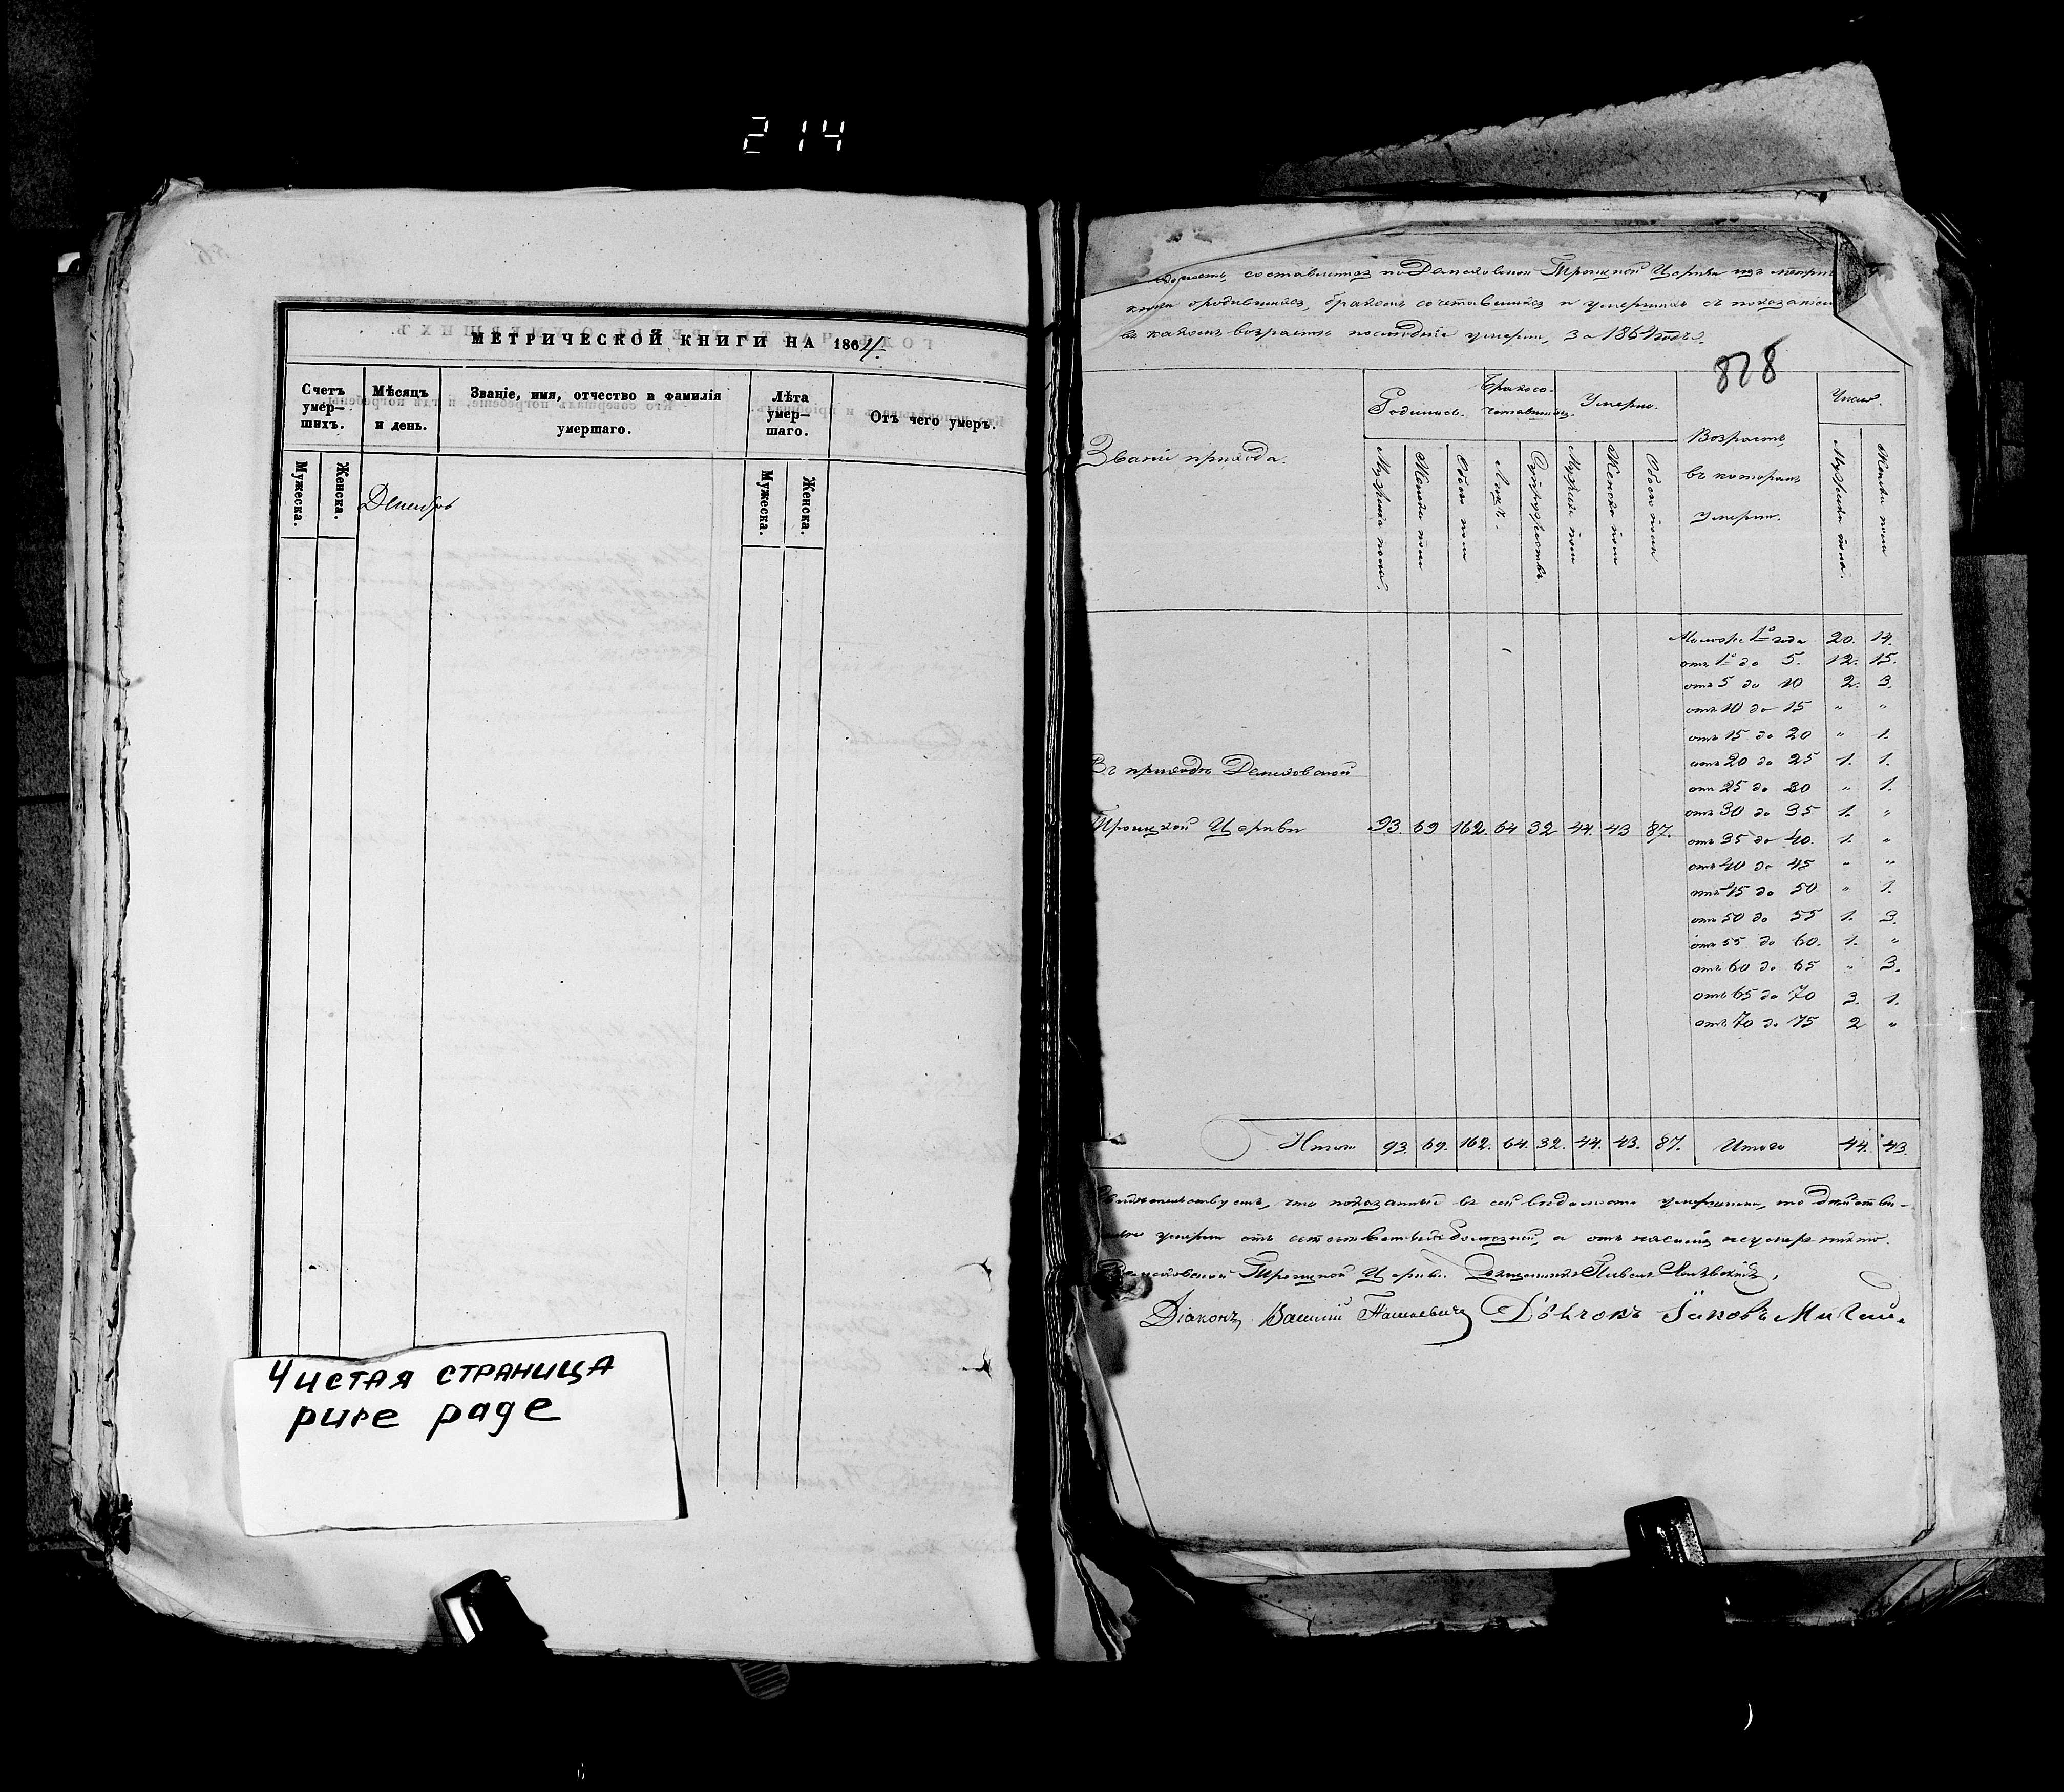 214
МЕТРИЧЕСКОЙ КНИГИ НА 1864.
Счетъ умер— шихъ.
Мѣсяцъ и день.
Званіе, имя, отчество и фамилія умершаго.
Лѣта умер— шаго.
Отъ чего умеръ.
Мужеска.
Женска.
Мужеска.
Женска.
Декабрь
Чистая страница
pure page
составленная по Троицкой Церкви изъ
книги о родившихся, бракомъ сочетавшихся и умершихъ съ показаніемъ
въ какомъ возрастѣ последніе умерли, за 1864 годъ.
828
Родились.
Бракосо-
четавшихся.
Умерли.
Званіе прихода.
Возрастъ,
въ которомъ
умерли.
Число.
Мужеска пола.
Женска пола
Обоего пола
Лицъ.
Супружествъ.
Мужеска пола
Женска пола
Обоего пола
Мужеска пола.
Женска пола
1го года 20. 14.
отъ 1го до 5. 12. 15.
отъ 5 до 10 2. 3.
отъ 10 до 15 " "
отъ 15 до 20 " 1.
отъ 20 до 25 1. 1.
отъ 25 до 30 " 1.
отъ 30 до 35 1. "
отъ 35 до 40. 1. "
отъ 40 до 45 " "
отъ 45 до 50 " 1.
отъ 50 до 55 1. 3.
отъ 55 до 60. 1. "
отъ 60 до 65 " 3.
отъ 65 до 70 3. 1.
отъ 70 до 75 2 "
Въ приходѣ
Троицкой Церкви 93. 69 162. 64 32 44. 43 87.
Итого 93. 69. 162. 64. 32. 44. 43. 87. Итого 44. 43.
что показанные въ сей вѣдомости умершими, то действи-
умерли отъ естественныхъ болезней, а отъ насилія неумеръ никто.
Троицкой Церкви Священникъ Павелъ
Діаконъ Василій Дьячокъ Іаковъ